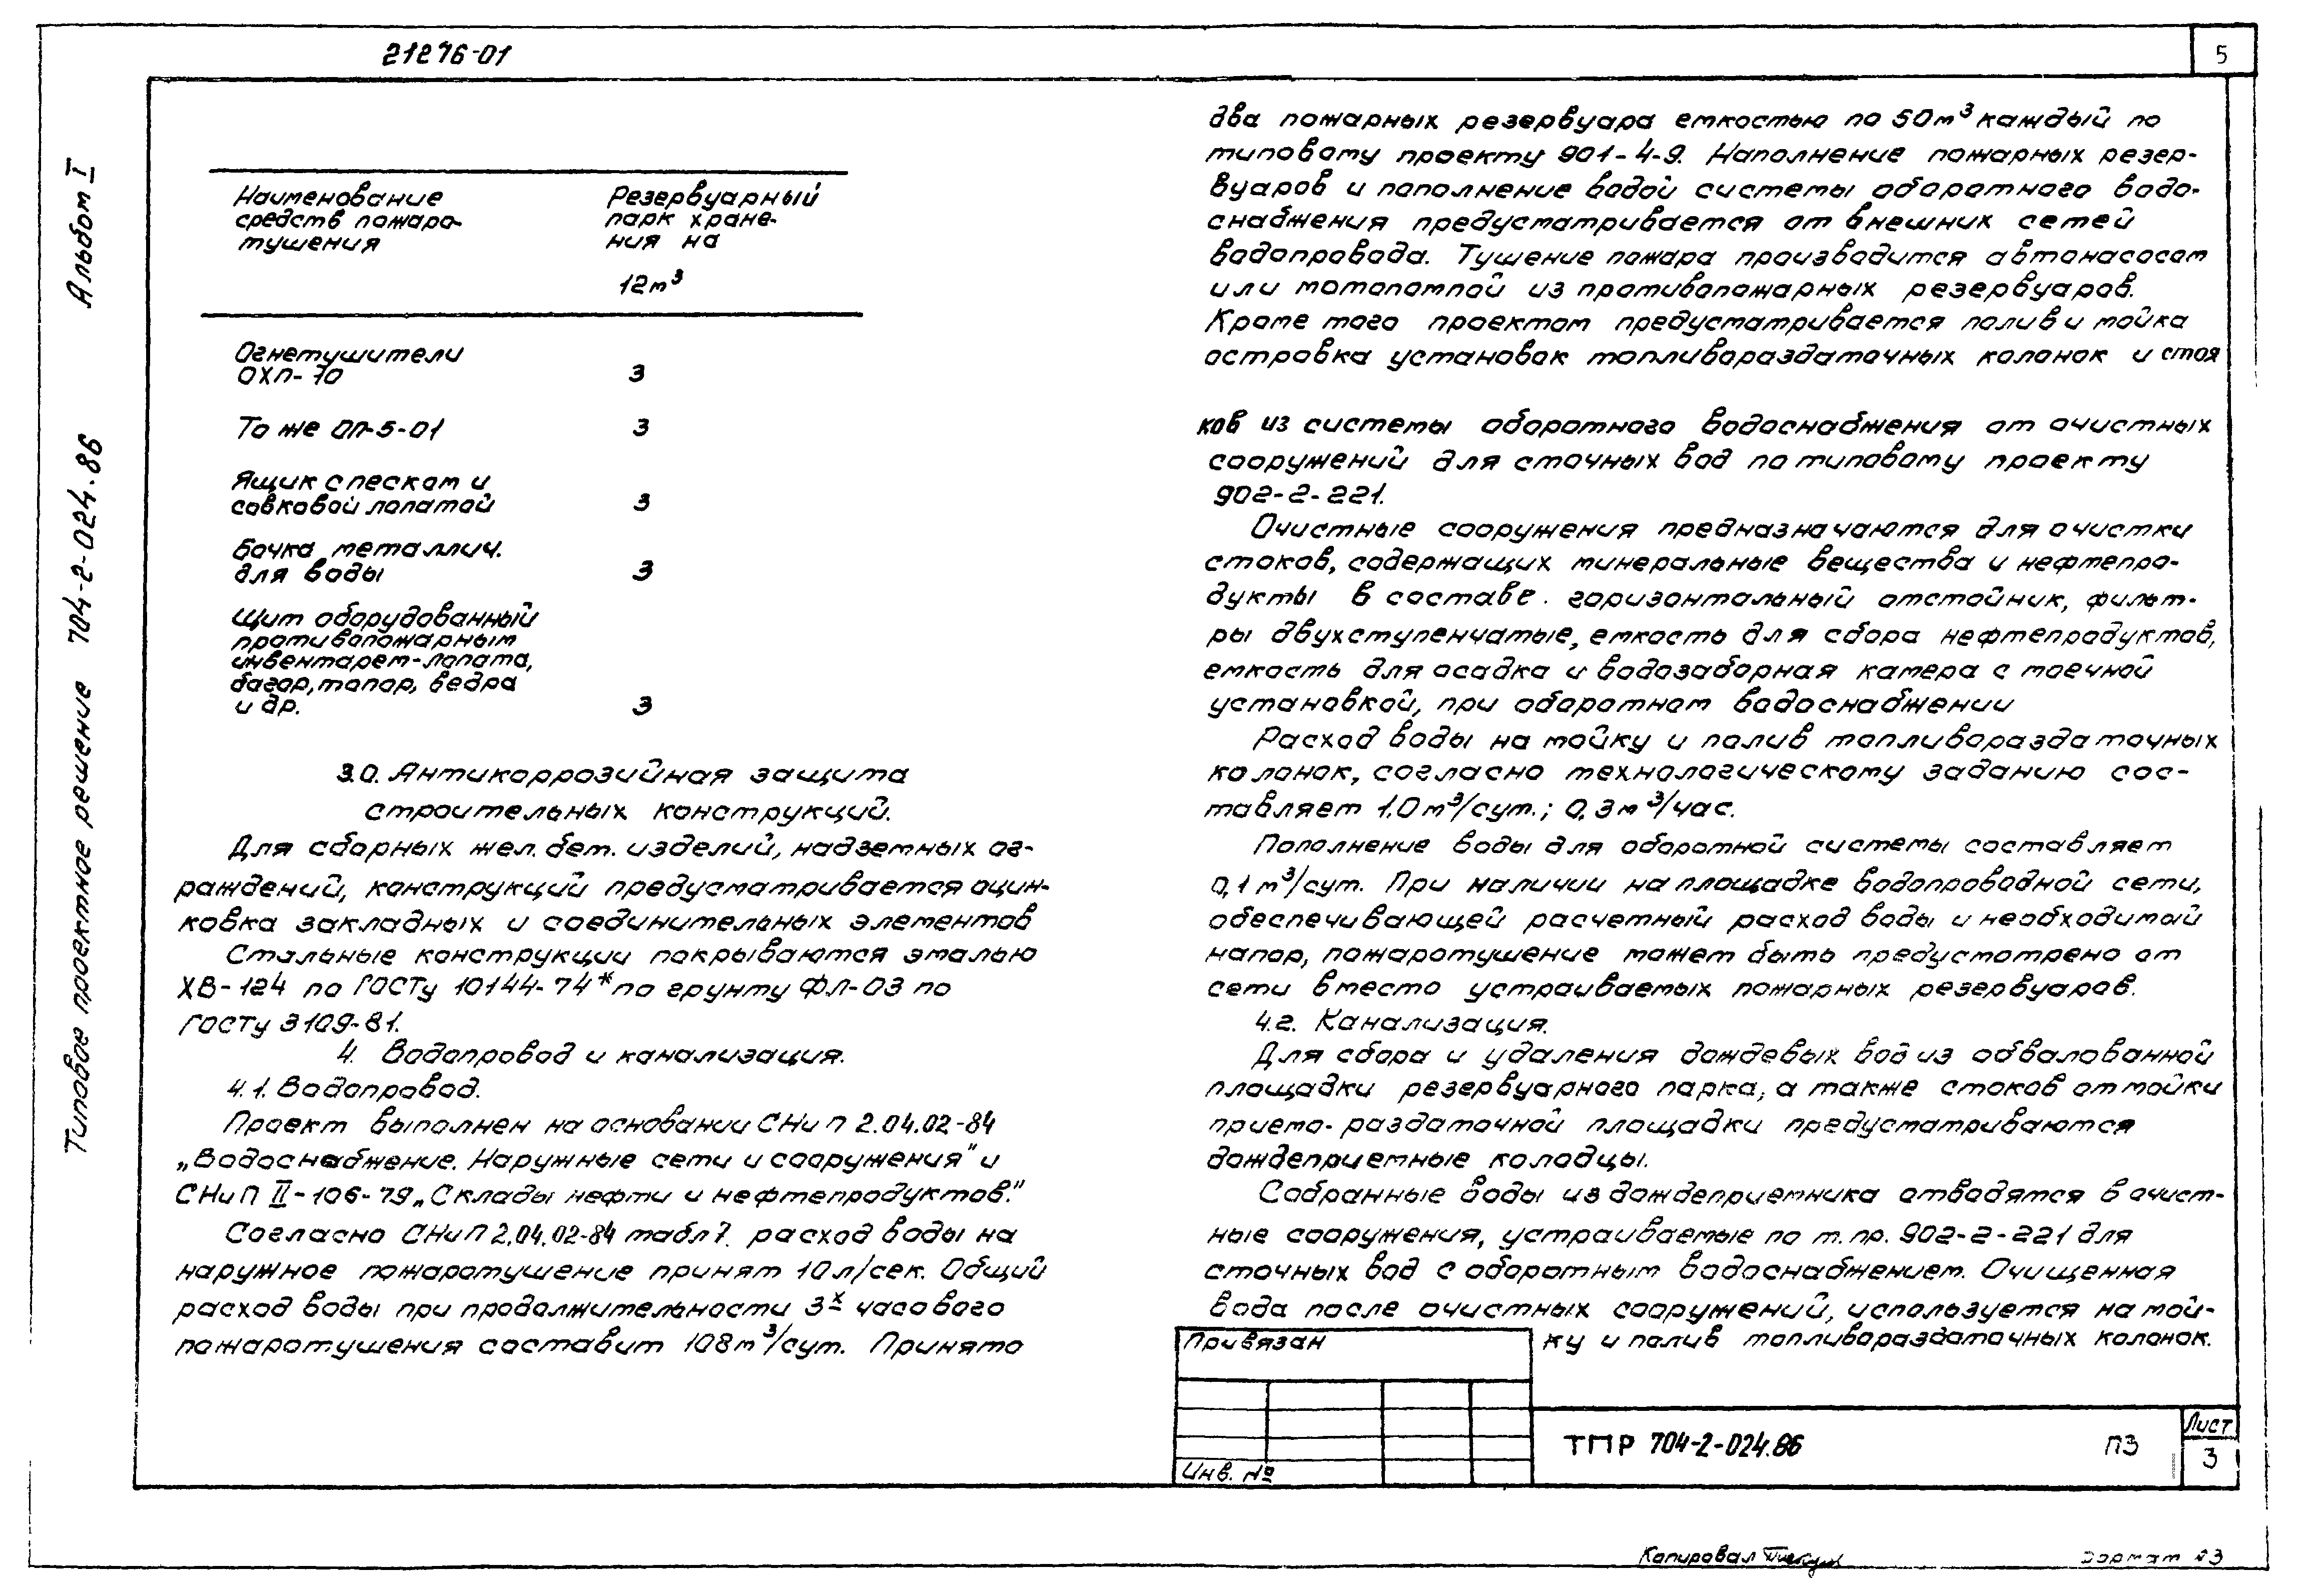 21276-01
5
Альбом I
Типовое проектное решение 704-2-024.86
Наименование
средств пожаро-
тушения
Резервуарный
парк хране-
ния на
12м³
Огнетушители
ОХП-10 3
То же ОП-5-01 3
Ящик с песком и
совковой лопатой 3
Бочка металлич.
для воды 3
Щит оборудованный
противопожарным
инвентарем-лопата,
багор, топор, ведра
и др. 3
3.0. Антикоррозийная защита
строительных конструкций.
Для сборных жел. бет. изделий, надземных ог-
раждений, конструкций предусматривается оцин-
ковка закладных и соединительных элементов
Стальные конструкции покрываются эмалью
ХВ-124 по ГОСТу 10144-74* по грунту ФЛ-03 по
ГОСТу 9109-81.
4. Водопровод и канализация.
4.1. Водопровод.
Проект выполнен на основании СНиП 2.04.02-84
„Водоснабжение. Наружные сети и сооружения" и
СНиП II-106-79 „Склады нефти и нефтепродуктов."
Согласно СНиП 2.04.02-84 табл 7. расход воды на
наружное пожаротушение принят 10 л/сек. Общий
расход воды при продолжительности 3х часового
пожаротушения составит 108м³/сут. Принято
два пожарных резервуара емкостью по 50м³ каждый по
типовому проекту 901-4-9. Наполнение пожарных резер-
вуаров и пополнение водой системы оборотного водо-
снабжения предусматривается от внешних сетей
водопровода. Тушение пожара производится автонасосом
или мотопомпой из противопожарных резервуаров.
Кроме того проектом предусматривается полив и мойка
островка установок топливораздаточных колонок и сток
ков из системы оборотного водоснабжения от очистных
сооружений для сточных вод по типовому проекту
902-2-221.
Очистные сооружения предназначаются для очистки
стоков, содержащих минеральные вещества и нефтепро-
дукты в составе. горизонтальный отстойник, фильт-
ры двухступенчатые, емкость для сбора нефтепродуктов,
емкость для осадка и водозаборная камера с моечной
установкой, при оборотном водоснабжении
Расход воды на мойку и полив топливораздаточных
колонок, согласно технологическому заданию сос-
тавляет 1.0 м³/сут.; 0,3 м³/час.
Пополнение воды для оборотной системы составляет
0,1 м³/сут. При наличии на площадке водопроводной сети,
обеспечивающей расчетный расход воды и необходимый
напор, пожаротушение может быть предусмотрено от
сети вместо устраиваемых пожарных резервуаров.
4.2. Канализация.
Для сбора и удаления дождевых вод из обвалованной
площадки резервуарного парка, а также стоков от мойки
приемо-раздаточной площадки предусматриваются
дождеприемные колодцы.
Собранные воды из дождеприемника отводятся в очист-
ные сооружения, устраиваемые по т. пр. 902-2-221 для
сточных вод с оборотным водоснабжением. Очищенная
вода после очистных сооружений, используется на мой-
ку и полив топливораздаточных колонок.
Привязан
Инв. №
ТПР 704-2-024.86 ПЗ
Лист
3
Копировал
Формат А3